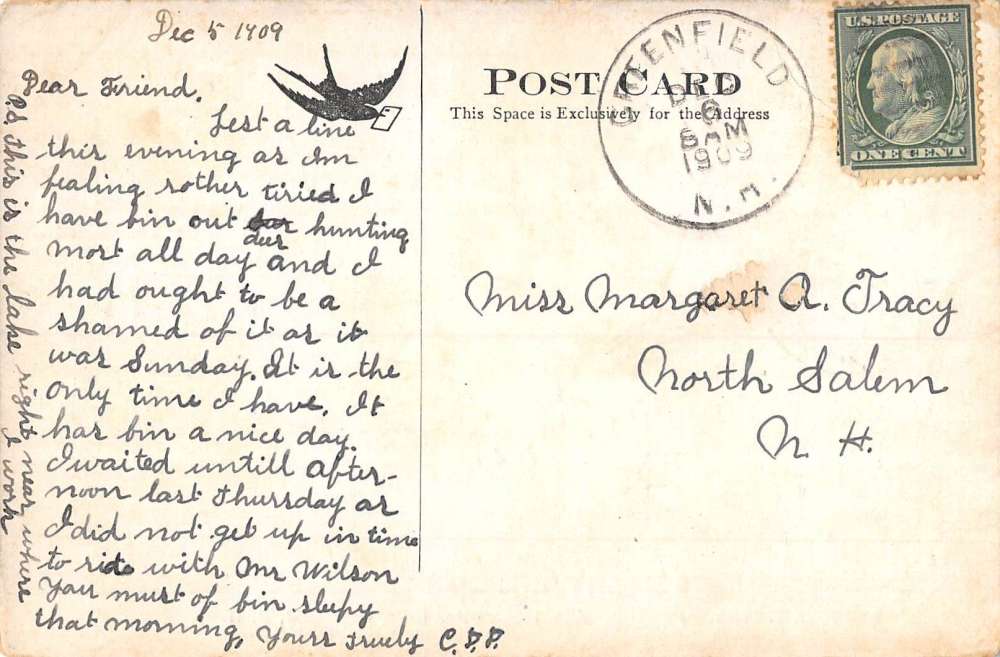 Dec 5 1909
Dear Friend.
Jest a line
this evening as Im
fealing rother tiried I
have bin out deer hunting
most all day and I
had ought to be a
shamed of it as it
was Sunday. It is the
only time I have. It
has bin a nice day.
I waited untill after-
noon last thursday as
I did not get up in time
to ride with Mr Wilson
You must of bin sleepy
that morning, Yours Truely C.D.P.
P.S this is the lake right near where
I work
POST CARD
This Space is Exclusively for the Address
GREENFIELD
DEC
6
8 AM
1909
N.H.
U.S. POSTAGE
ONE CENT
Miss Margaret A. Tracy
North Salem
N. H.